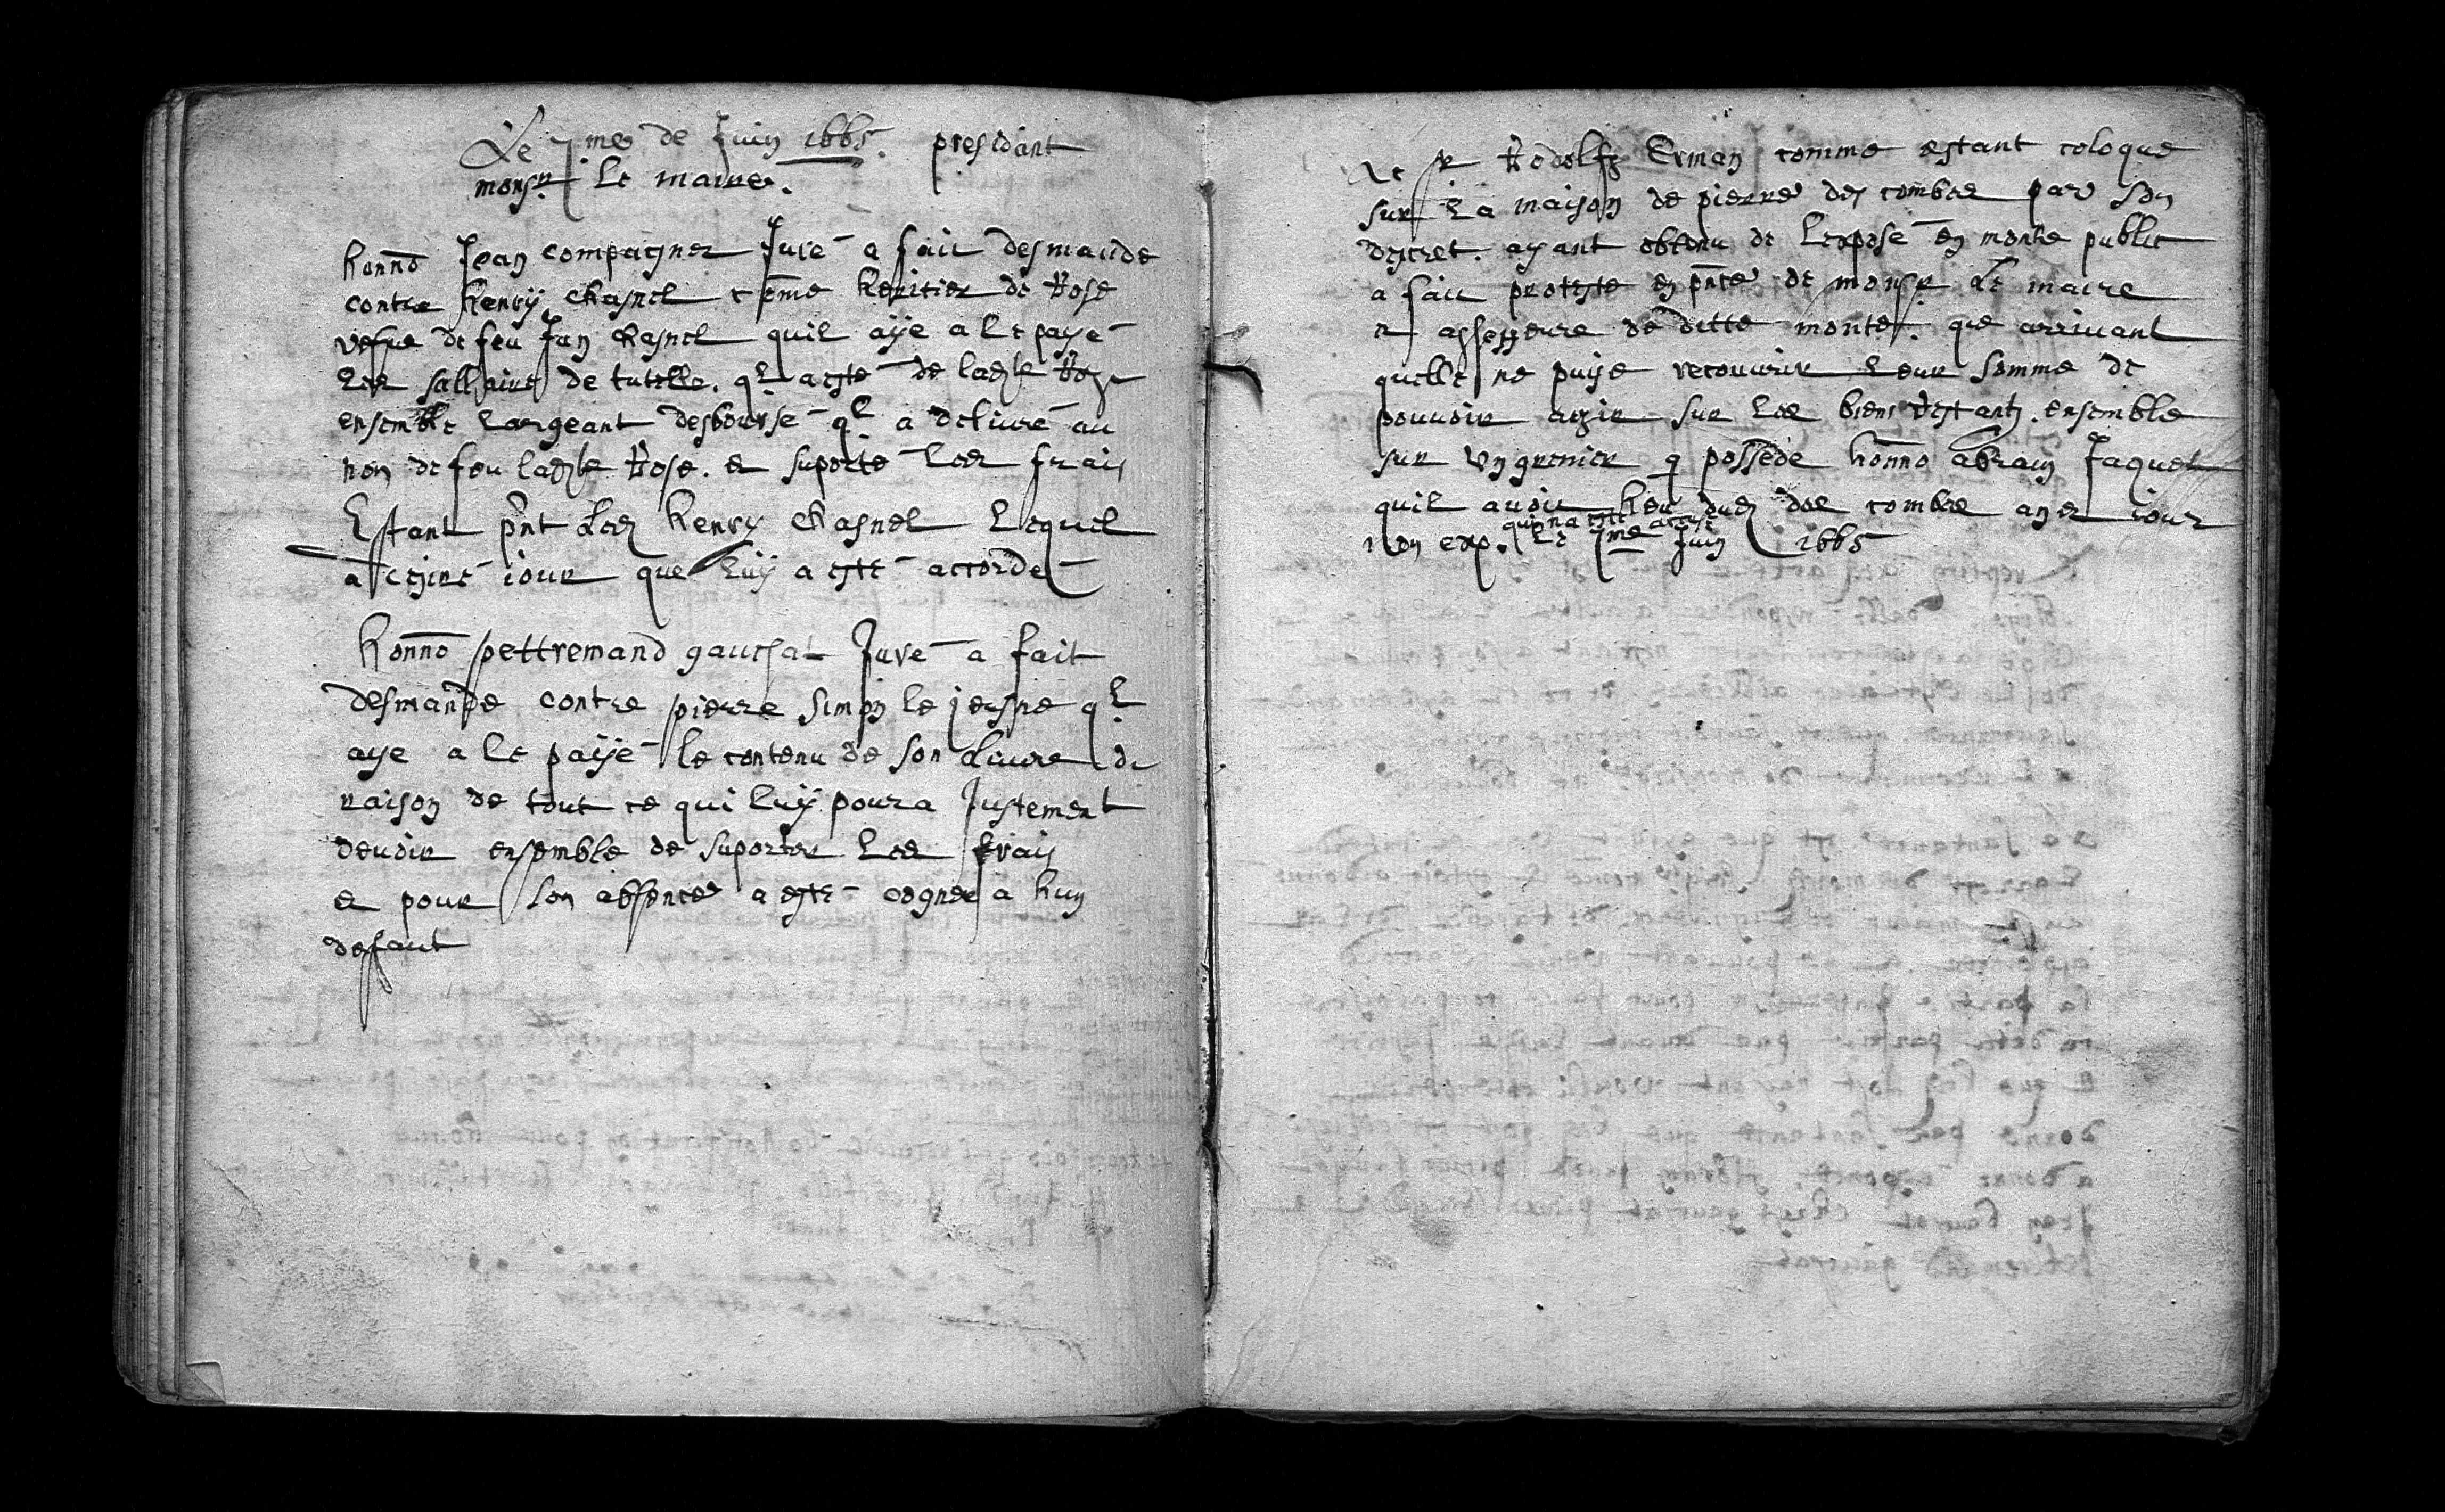 Le 7me de Juin 1665. presidant
monsr. le maire.
honno Jean compagnez Juré a fait desmande
contre henrÿ chasnel come heritier de Rose
vefue de feu Jan chasnel quil aÿe a le payé
les sallaire de tutelle. ql a esté de ladte Rose
ensemble largeant desboursé ql a deliuré au
non de feu ladte Rose. et suporté les frais
Estant pnt led henry chasnel lequel
a desiré iour que luÿ a esté accordé
honno pettremand gauchat Juré a fait
desmande contre pierre simon le jeusne ql
aye a le paÿé le contenu de son liure de
raison de tout ce qui luÿ poura Justement
deuoir ensemble de suporter les frais
et pour son absence a esté cogneu a huy
defaut
Le sr Rodolfz Erman comme estant coloque
sur la maison de pierre des combes par son
descret. ayant obtenu de lexposé en monte public
a fait protesté en pnce de monsr le maire
et assesseure de ditte monte. que arriuant
quelle ne puise recouurir leur somme de
pouuoir agir sur les biens restants. ensemble
sur un grenier q possede honno abram Jaquet
quil auoit heu dud des combes ayer iour
non exp. le 7me Juin 1665